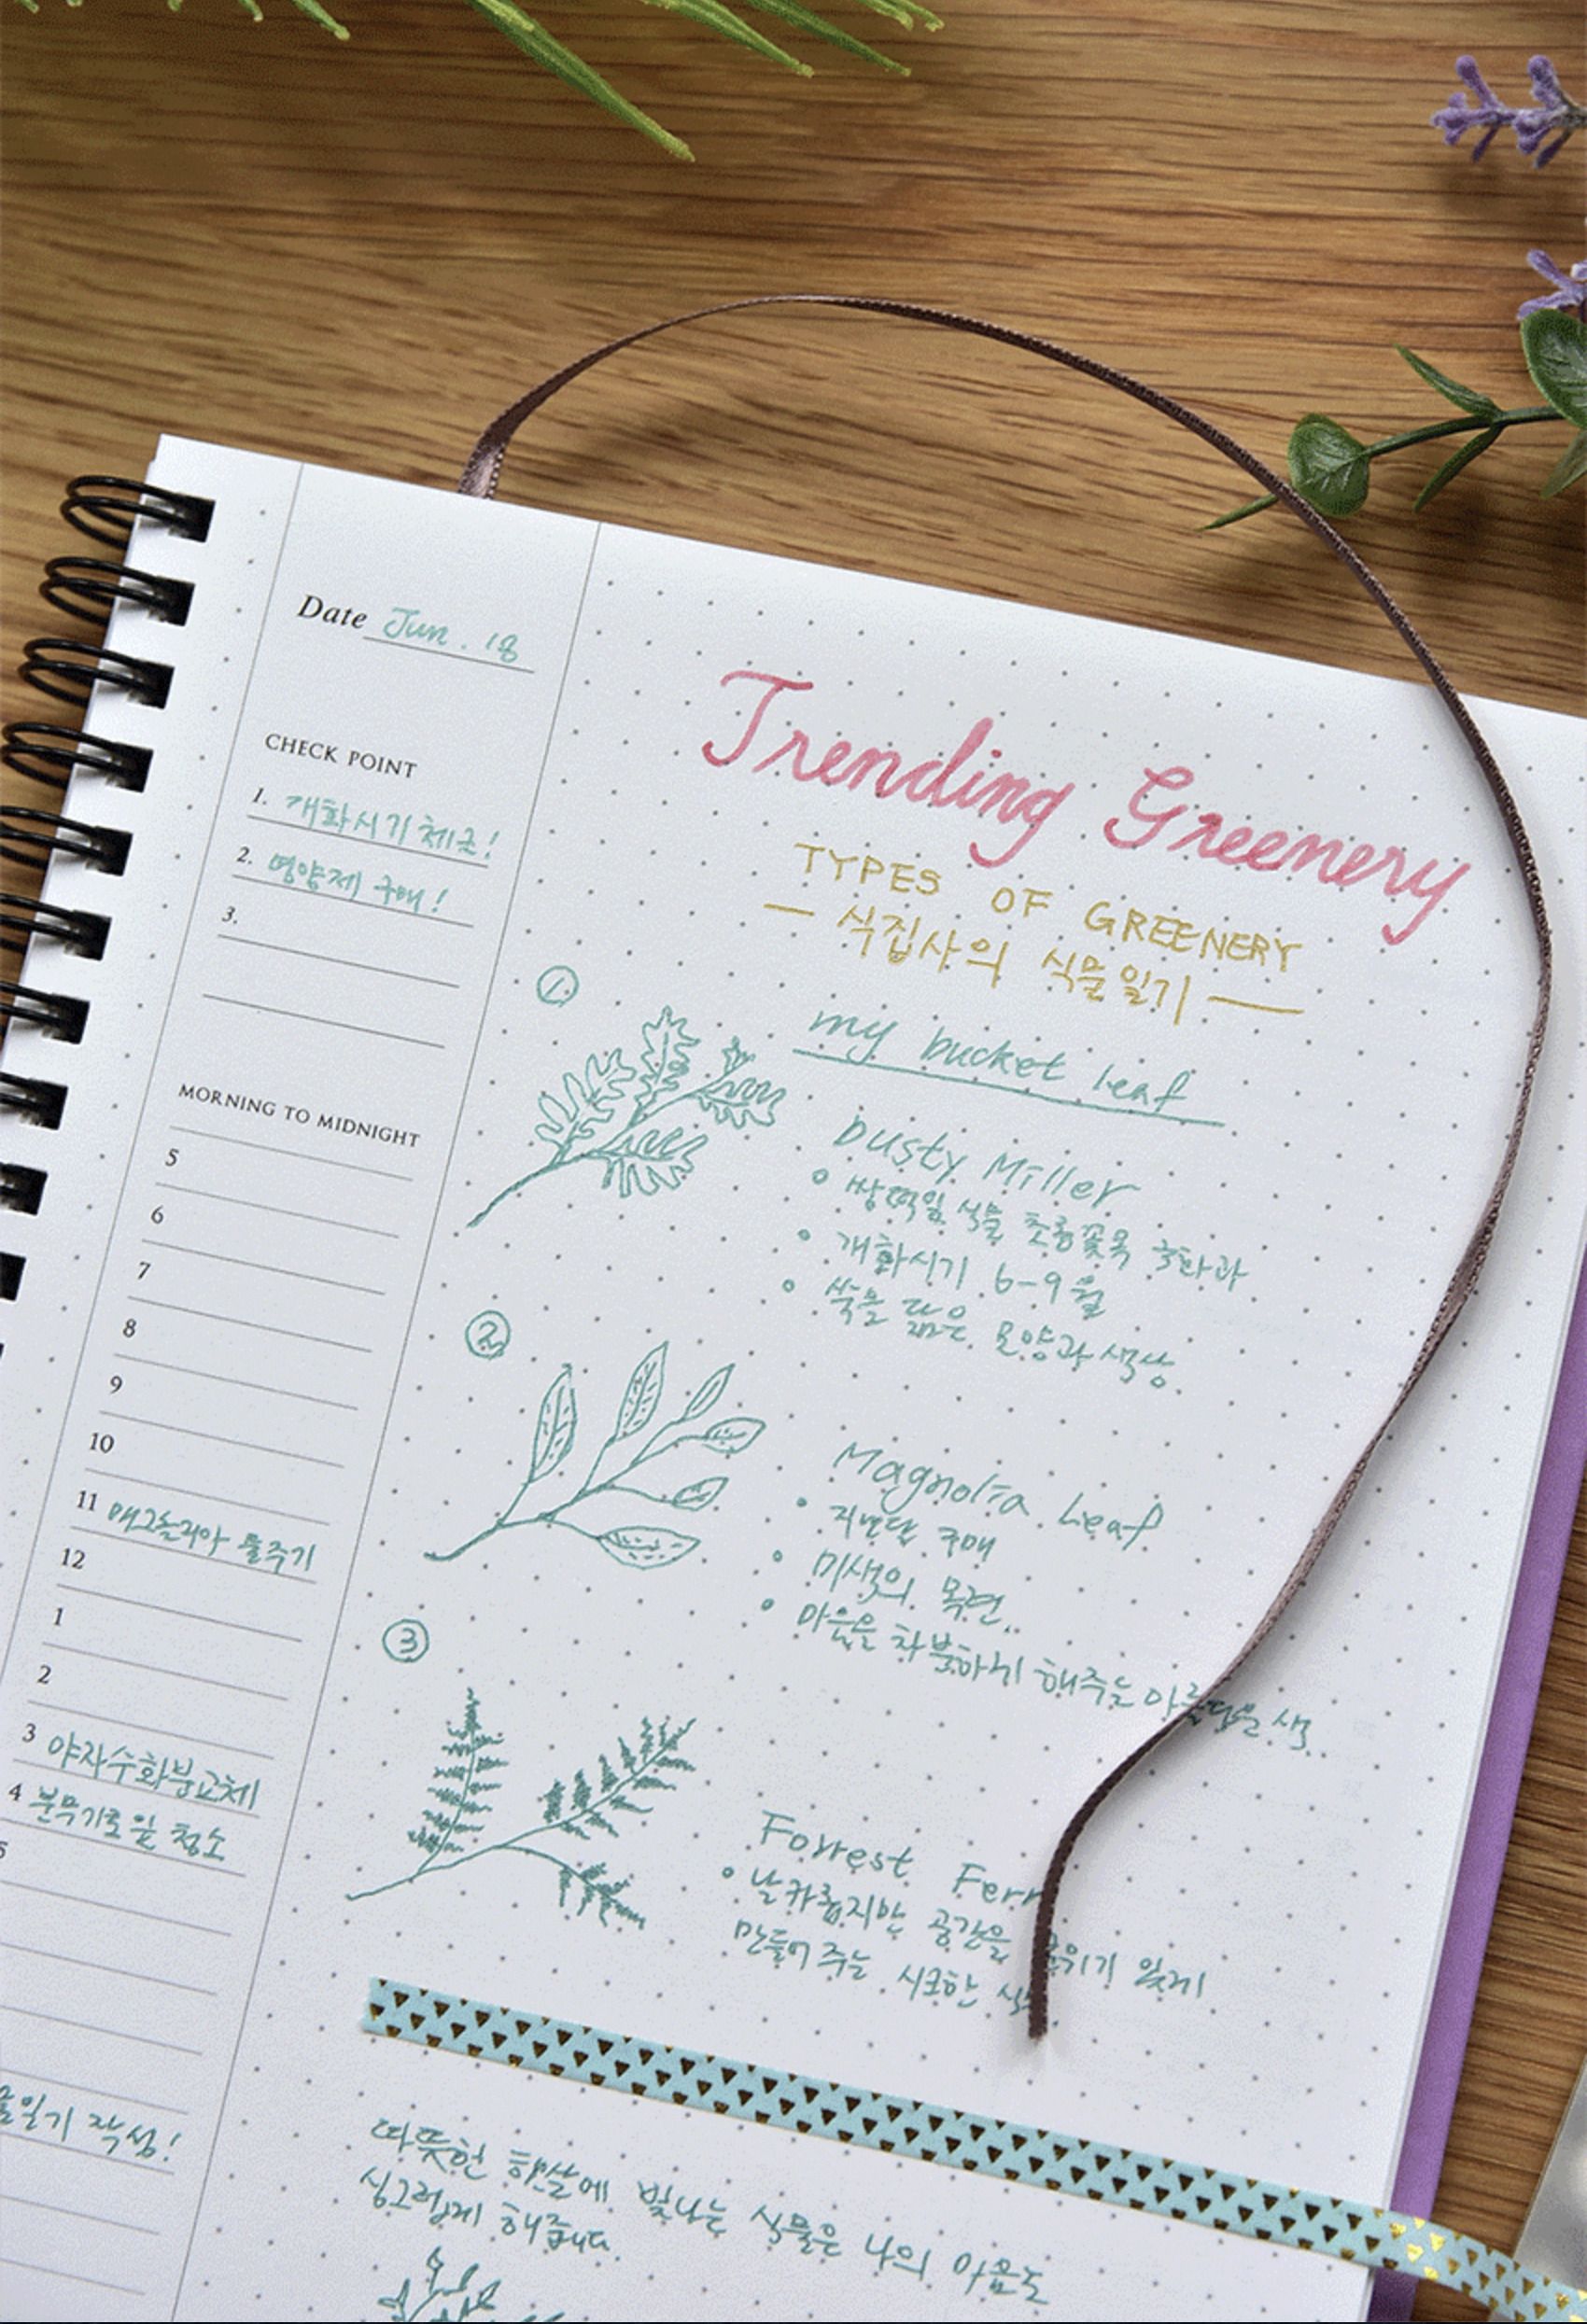 Date Jun. 18
CHECK POINT
1. 개화시기 체크!
2. 영양제 구매!
3.
MORNING TO MIDNIGHT
5
6
7
8
9
10
11 매그놀리아 물주기
12
1
2
3 야자수화분교체
4 분무기로 잎 청소
물일기 작성!
Trending Greenery
TYPES OF GREENERY
— 식집사의 식물일기 —
my bucket leaf
1.
Dusty Miller
• 쌍떡잎 식물 초롱꽃목 국화과
• 개화시기 6-9월
• 쑥을 닮은 모양과 색상.
2
Magnolia Leaf
• 지난달 구매
• 미색의 목련..
• 마음을 차분하게 해주는 아름다운 색..
3
Forrest Fern
• 날카롭지만 공간을 분위기 있게
만들어 주는 시크한
따뜻한 햇살에 빛나는 식물은 나의 마음도
싱그럽게 해줍니다.